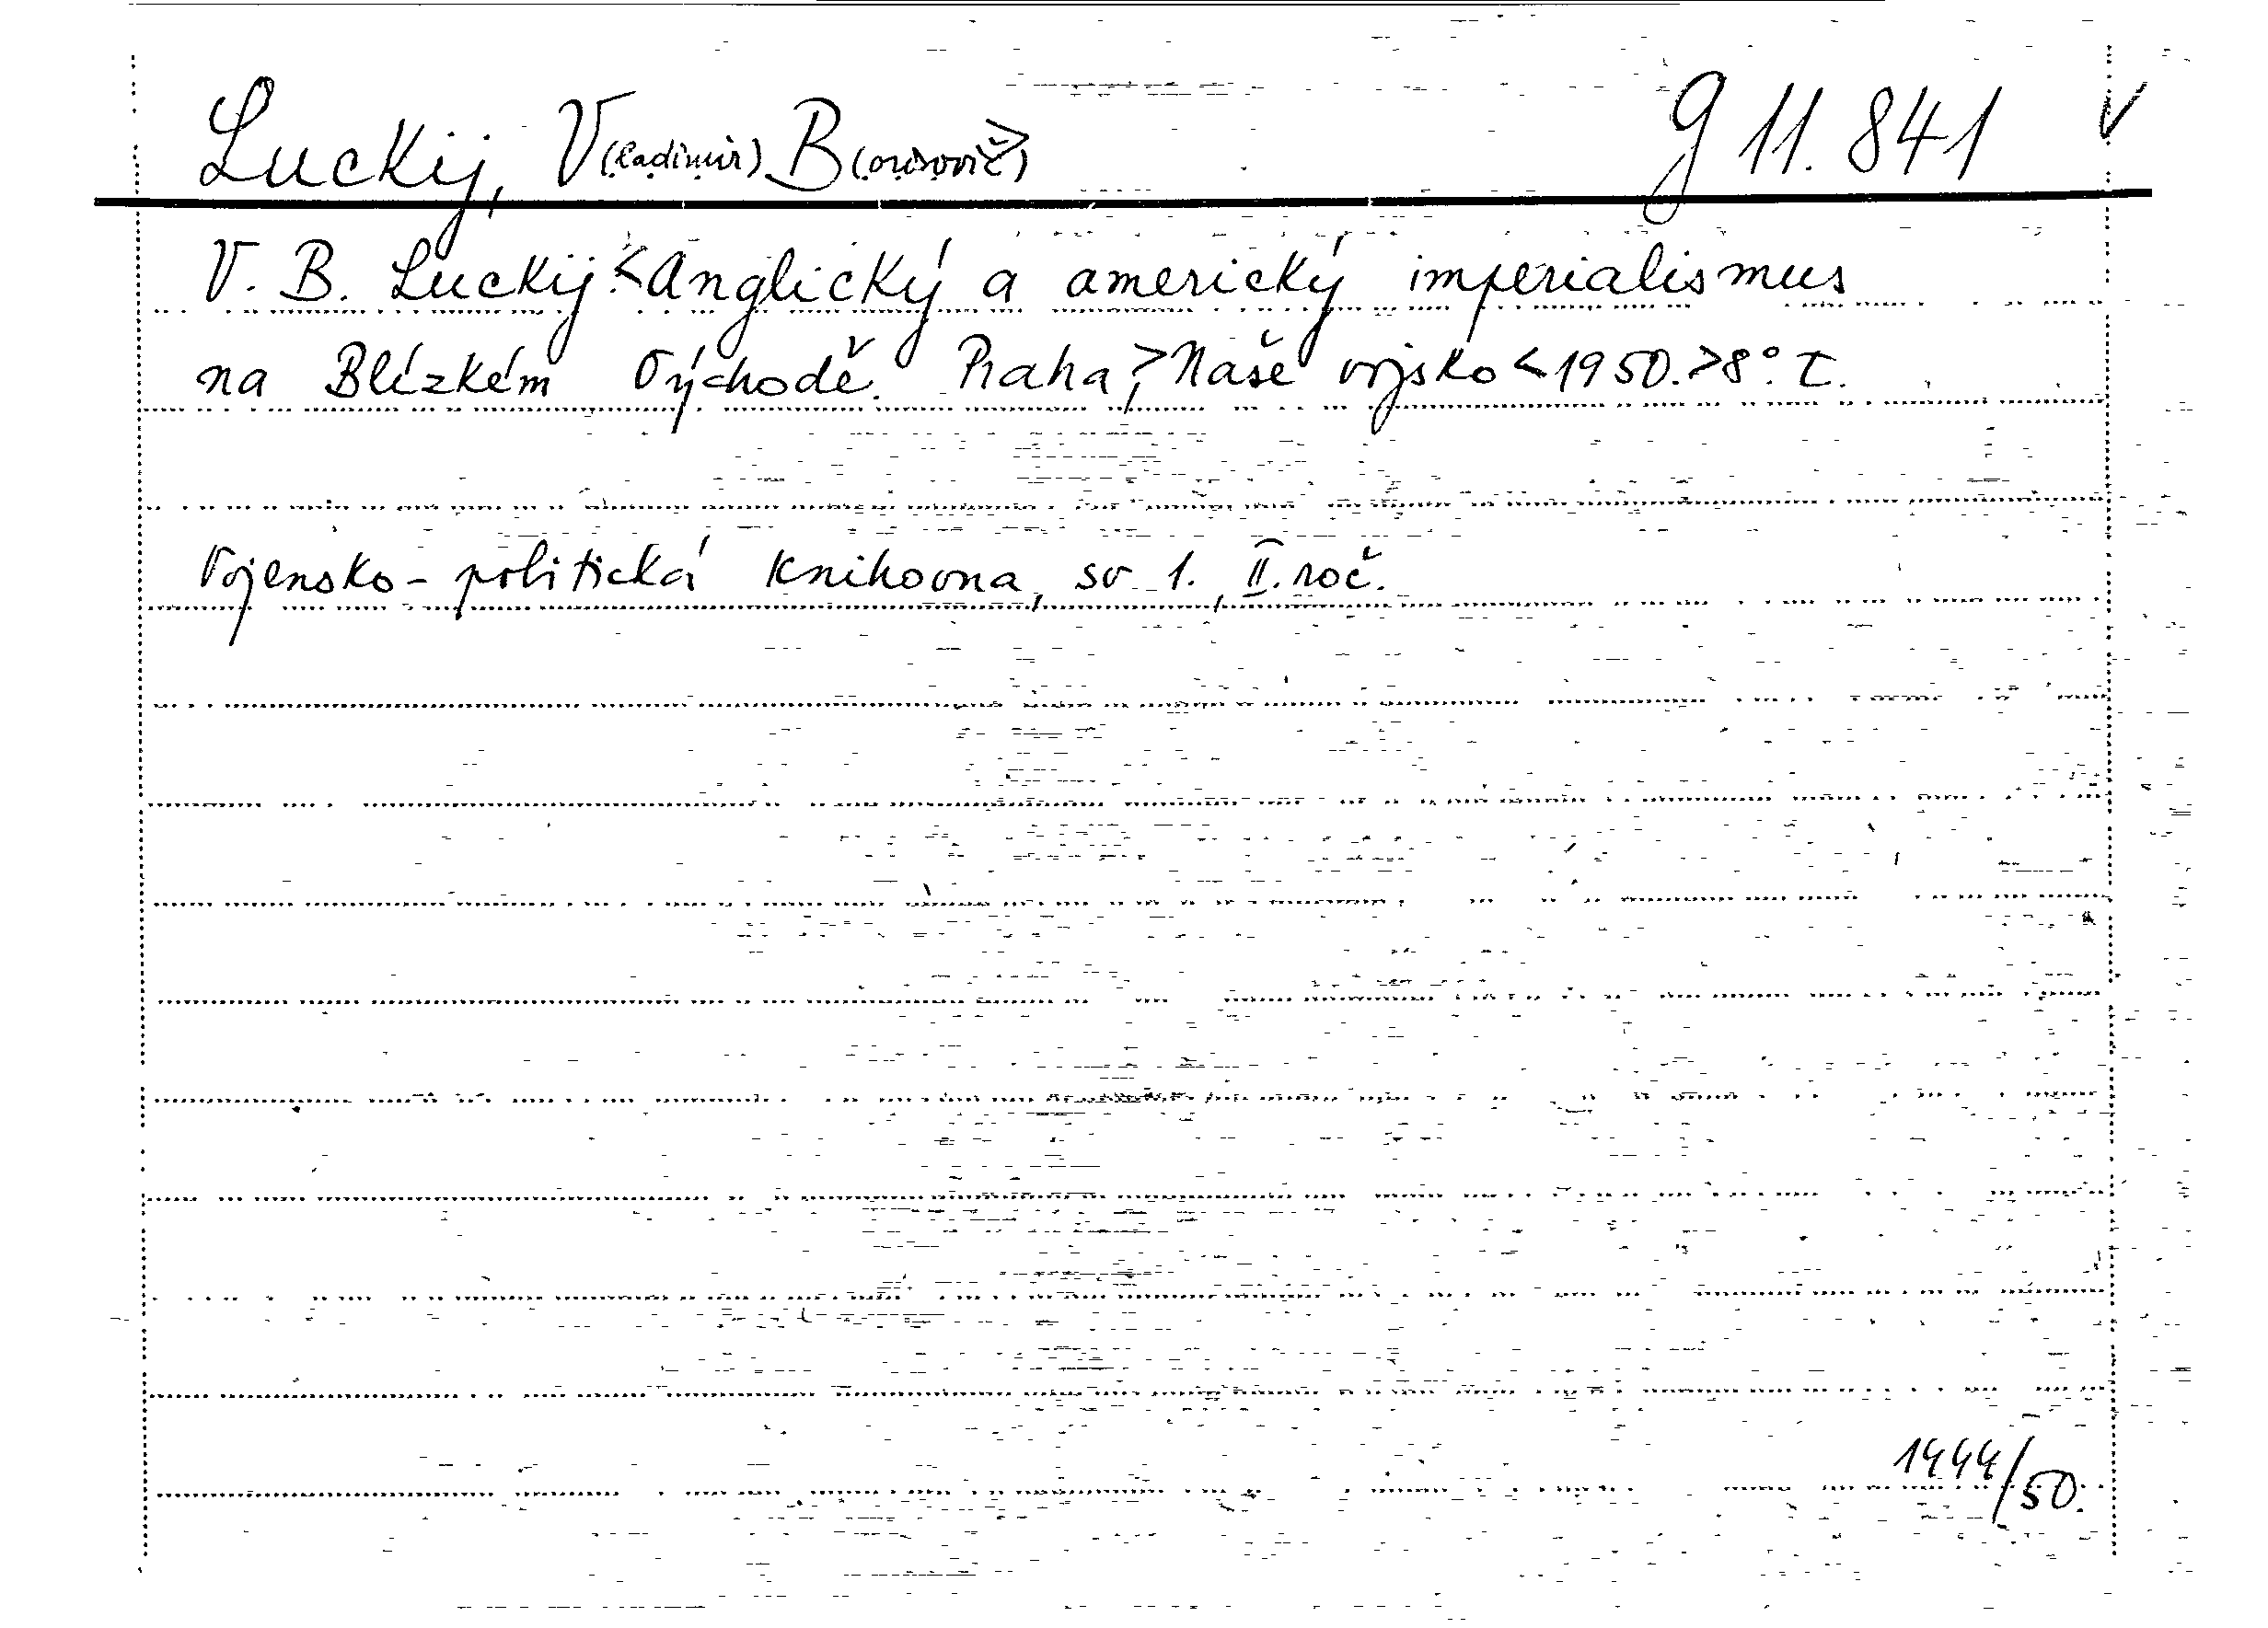 Luckij, V(ladimir) B(orisovič) g 11.841 ✓
V. B. Luckij: < Anglický a americký imperialismus
na Blízkém Východě. Praha, > Naše vojsko < 1950. > 8°. T.
Vojensko-politická knihovna, sv. 1., II. roč.
1444/50.